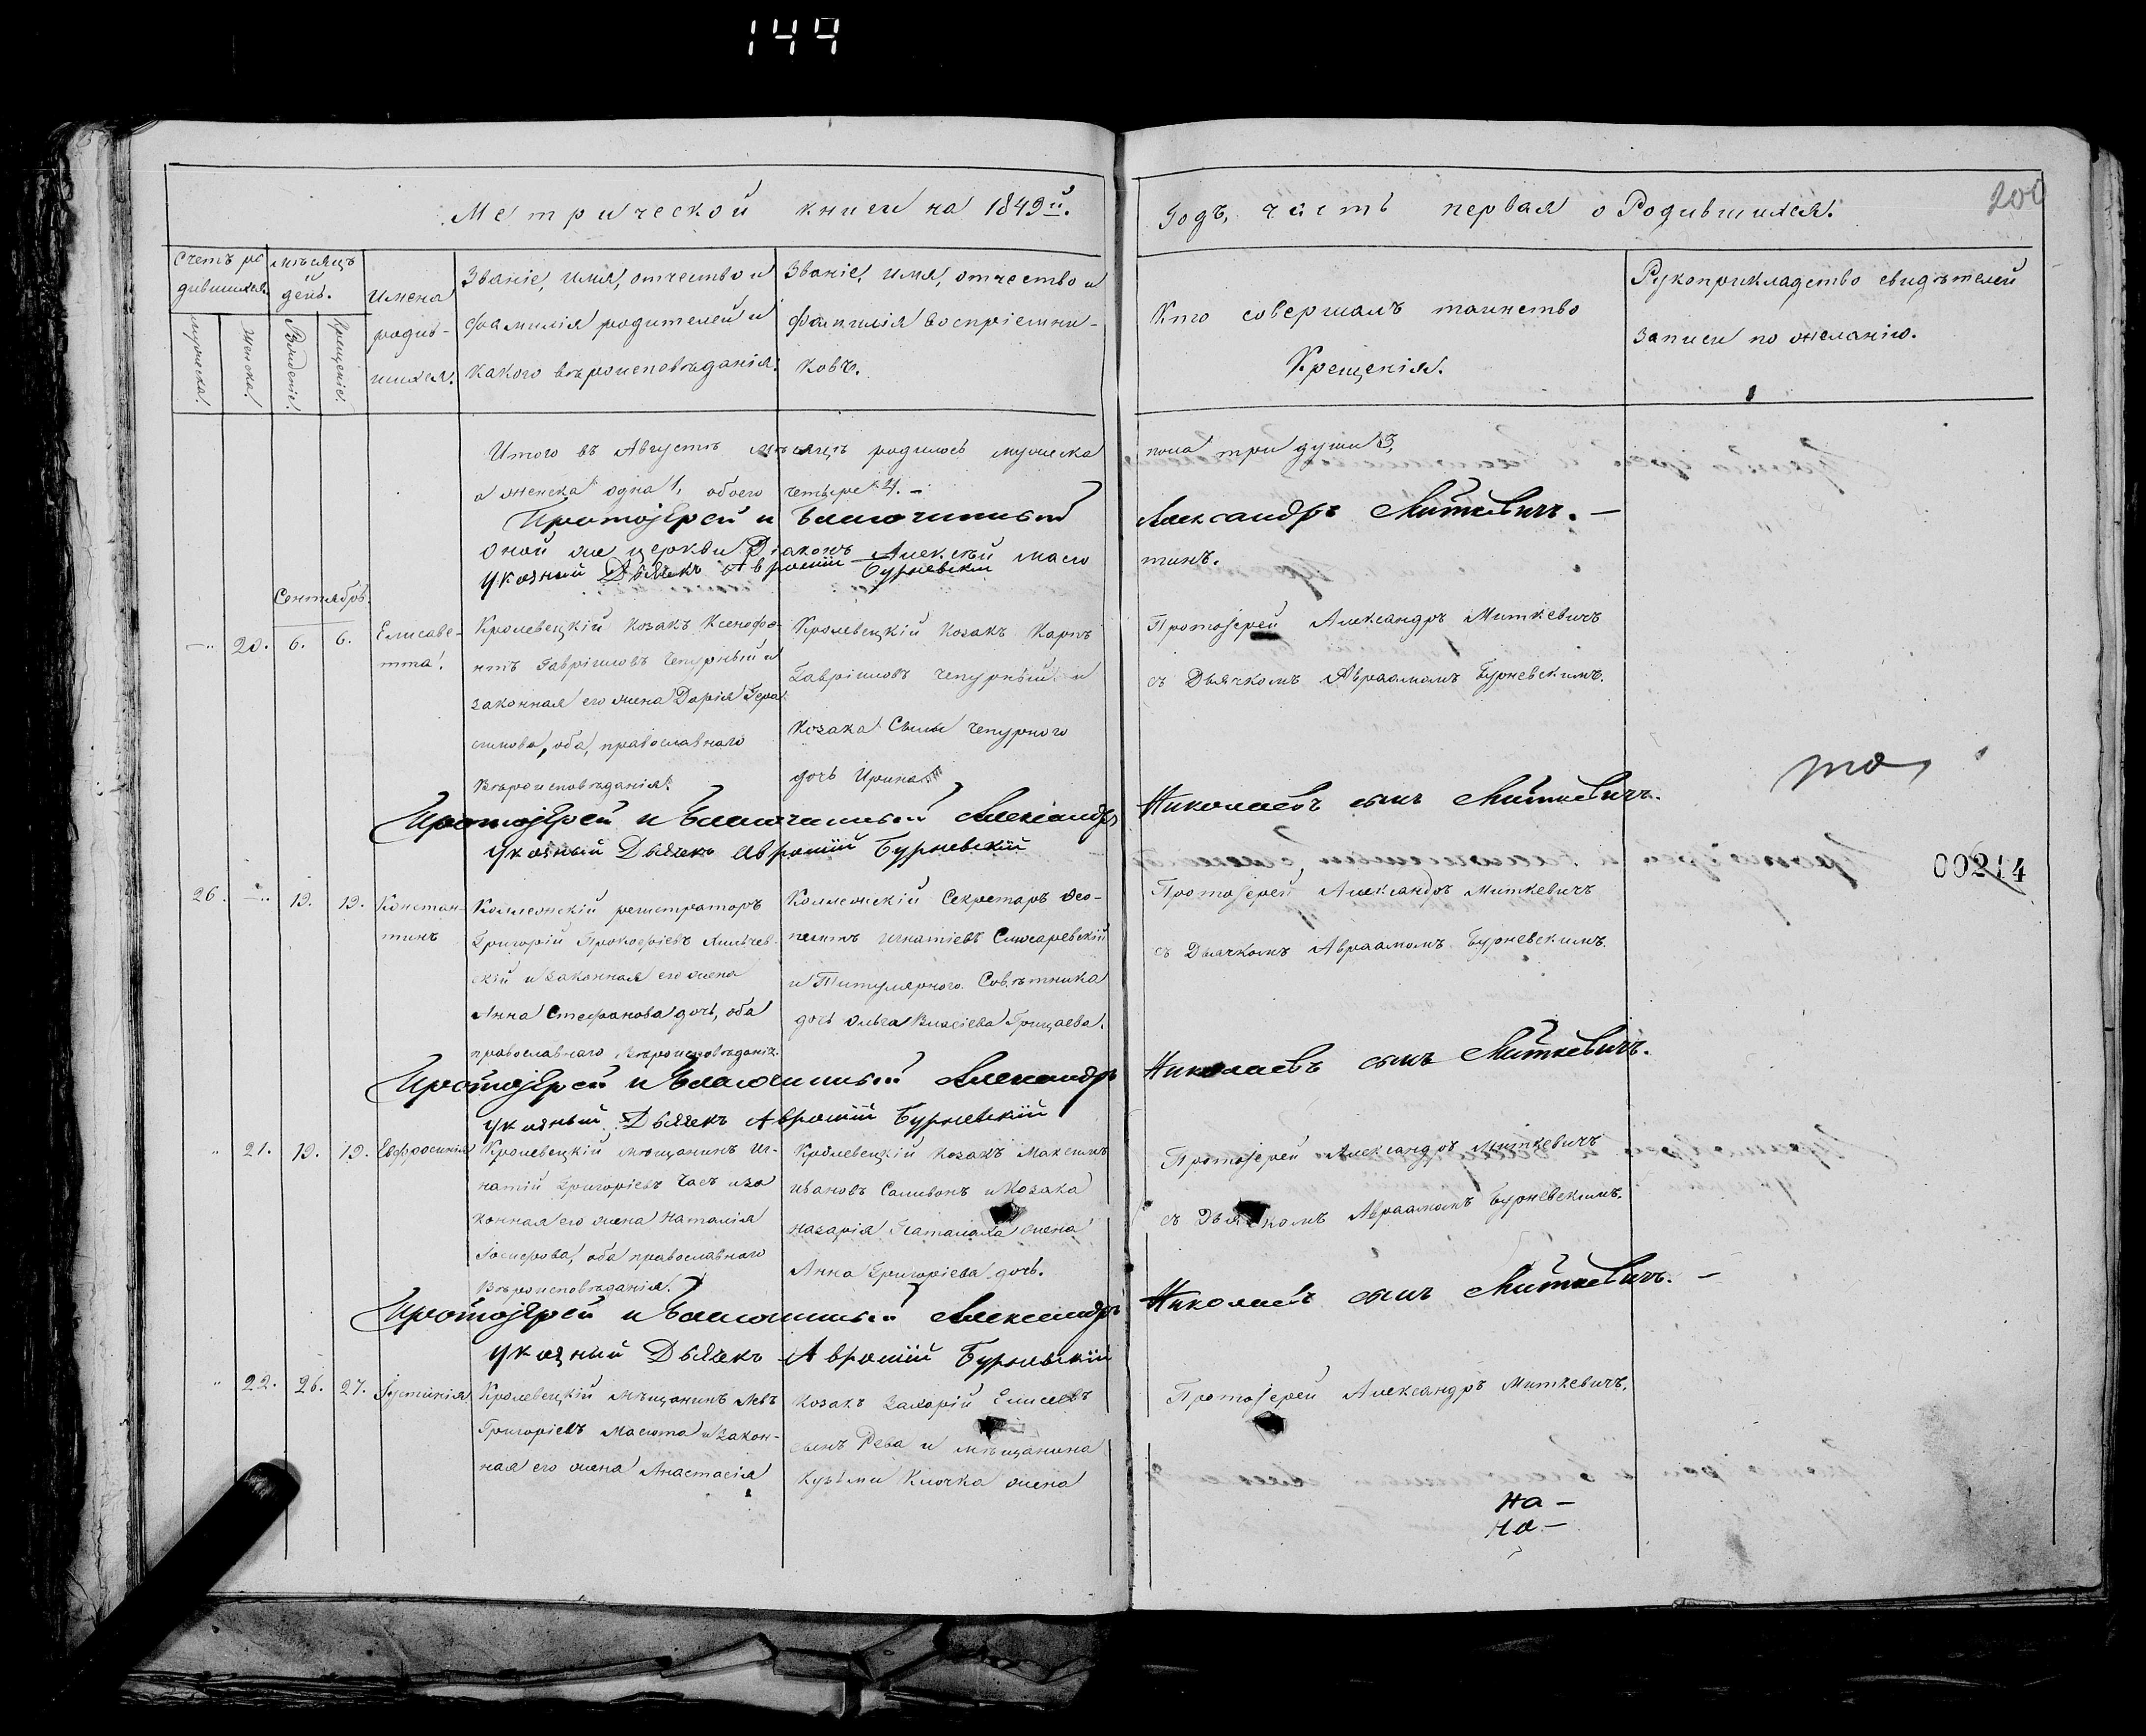 144
200
Метрической книги на 1849й.
Годъ, часть первая о Родившихся.
Счетъ ро
дившихся.
мужеска.
женска.
мѣсяцъ
и
день.
Рожденіе.
Крещеніе.
имена
родив-
шихся.
Званіе, имя, отчество и
фамилія родителей и
какого вѣроисповѣданія.
Званіе, имя, отчество и
фамилія воспріемни-
ковъ.
Кто совершалъ таинство
Крещенія.
Рукоприкладство свидѣтелей
записи по желанію.
Итого въ Августѣ мѣсяцѣ родилось мужеска
пола три души 3,
а женска одна 1, обоего четыре 4. –
Протоіерей и Благочинный
Александръ Миткевичъ. –
оной же церкви Діаконъ Алексѣй Масю
тинъ.
указный Дьячекъ Аврамій Бурневскій
Сентябрь.
20. 6. 6. Елисаве-
тта.
Кролевецкій козакъ Ксенофо-
нтъ Гавріиловъ Чепурный и
законная его жена Дарія Гера-
симова, оба, православнаго
Вѣроисповѣданія.
Кролевецкій Козакъ Карпъ
Гавріиловъ Чепурный и
Козака Силы Чепурного
дочь Ирина
Протоіерей Александръ Миткевичъ
съ Дьячкомъ Авраамомъ Бурневскимъ.
Протоіерей и Благочинный Александръ
Николаевъ сынъ Миткевичъ.
указный Дьячекъ Аврамій Бурневскій
00214
26. 19. 19. Констан-
тинъ
Коллежскій регистраторъ
Григорій Прокофіевъ
скій и законная его жена
Анна Стефанова дочь, оба
православнаго Вѣроисповѣданія.
Коллежскій Секретарь Ѳео-
пемптъ Игнатіевъ Слюсаревскій
и Титулярного Совѣтника
дочь Ольга Власіева Грищаева.
Протоіерей Александръ Миткевичъ
съ Дьячкомъ Авраамомъ Бурневскимъ.
Протоіерей и Благочинный Александръ
Николаевъ сынъ Миткевичъ.
указный Дьячекъ Аврамій Бурневскій
21. 19. 19. Евфросинія
Кролевецкій мѣщанинъ Иг-
натій Григорієвъ Часъ и за
конная его жена Наталія
Іосифова, оба православнаго
Вѣроисповѣданія.
Кролевецкій козакъ Максимъ
Ивановъ Саливонъ и Козака
Назарія жена
Анна Григоріева дочь.
Протоіерей Александръ Миткевичъ
съ Дьячкомъ Авраамомъ Бурневскимъ.
Протоіерей и Благочинный Александръ
Николаевъ сынъ Миткевичъ. –
указный Дьячекъ Аврамій Бурневскій
22. 26. 27. Іустинія
Кролевецкій Мѣщанинъ Левъ
Григоріевъ Масюта и закон-
ная его жена Анастасія
Козакъ Захарій Елисеевъ
сынъ Рева и мѣщанина
Кузьми Клочка жена
Протоіерей Александръ Миткевичъ,
на –
на –